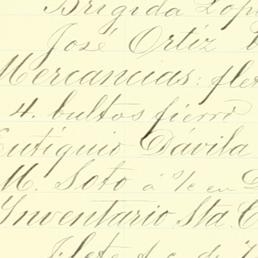 Brigida Lop
José Ortiz
Mercancias: flet
4. bultos fierro
Eutiquio Dávila
M. Soto á % en
Inventario Sta. C
Flete d. c. de